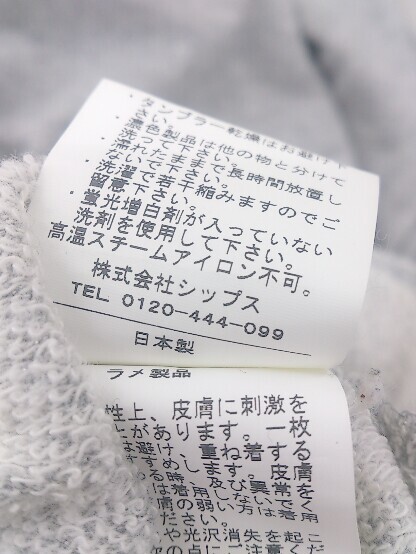 ・タンブラー乾燥はお避け下
さい。
・濃色製品は他の物と分けて
洗って下さい。
・濡れたままで長時間放置し
ないで下さい。
・洗濯で若干縮みますのでご
留意下さい。
・蛍光増白剤が入っていない
洗剤を使用して下さい。
高温スチームアイロン不可。
株式会社シップス
TEL 0120-444-099
日本製
ラメ製品
性上、皮膚に刺激を
があります。一枚
は避け、重ね着する
すすめします。皮膚
る時、及び異常を
は着用しないで
膚の弱い方は着用
ださい。
や光沢消失を起こ
の点にご注意くだ